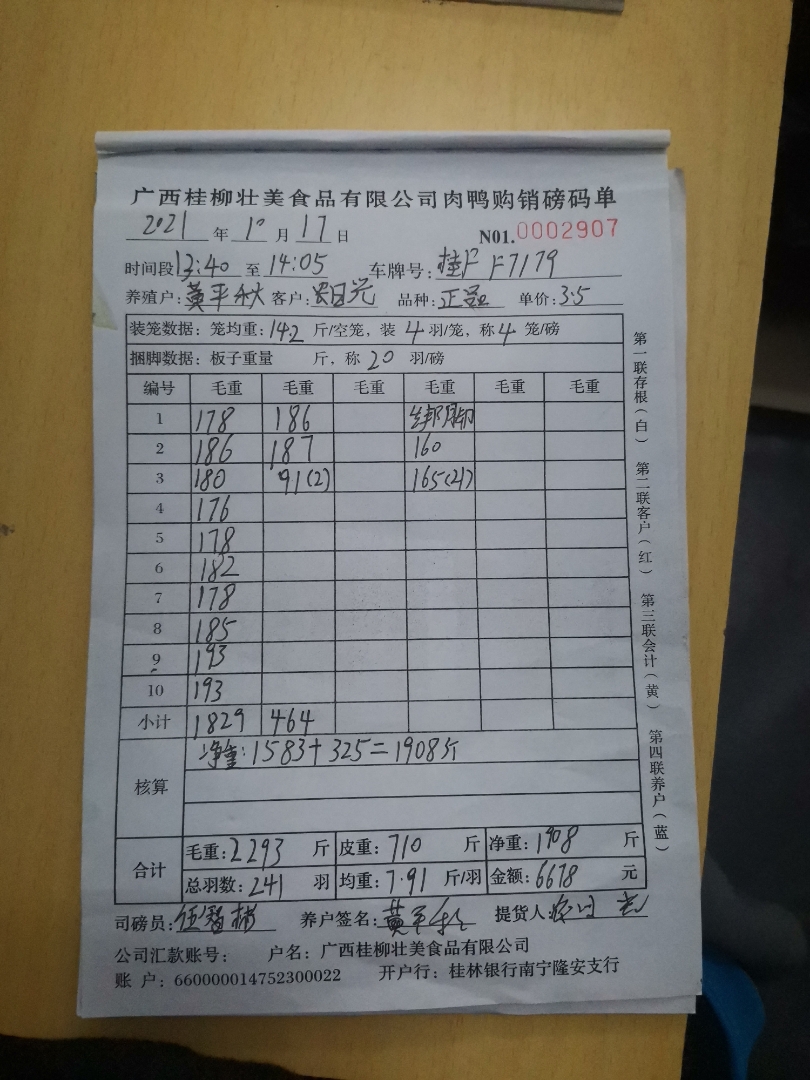 广西桂柳壮美食品有限公司肉鸭购销磅码单
2021 年 10 月 17 日 N01.0002907
时间段 13:40 至 14:05 车牌号: 桂F F7179
养殖户: 黄平秋 客户: 品种: 正品 单价: 3.5
装笼数据: 笼均重: 14.2 斤/空笼, 装 4 羽/笼, 称 4 笼/磅
捆脚数据: 板子重量 斤, 称 20 羽/磅
编号 毛重 毛重 毛重 毛重 毛重 毛重
1 178 186 绑脚
2 186 187 160
3 180 91(2) 165(21)
4 176
5 178
6 182
7 178
8 185
9 193
10 193
小计 1829 464
核算 净重: 1583+325=1908斤
合计 毛重: 2293 斤 皮重: 710 斤 净重: 1908 斤
总羽数: 241 羽 均重: 7.91 斤/羽 金额: 6678 元
司磅员: 养户签名: 黄平秋 提货人:
公司汇款账号: 户名: 广西桂柳壮美食品有限公司
账 户: 660000014752300022 开户行: 桂林银行南宁隆安支行
第一联存根(白) 第二联客户(红) 第三联会计(黄) 第四联养户(蓝)